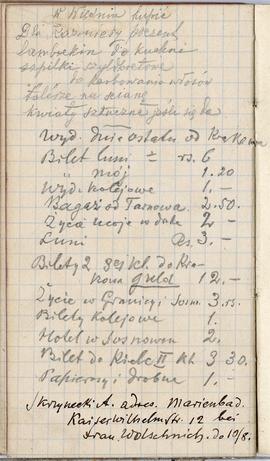 W Wiedniu kupić
Dla Kazimiery prezent
Lambrekin do kuchni
szpilki szyldkretowe
do karbowania włosów
talerze na ścianę
kwiaty sztuczne jeśli się da
Wyd. dnie ostatn. od Krakowa
Bilet Luni – rs. 6
" mój 1.20
Wyd. kolejowe 1.–
Bagaż od Tarnowa 2.50.
Życie moje w dro. 2.–
Luni Rs. 3.–
Bilety 2 kl. do Kra-
kowa guld 12.–
Życie w Granicy i Sosn. 3 rs.
Bilety kolejowe 1.
Hotel w Sosnowcu 2.
Bilet do Kielc II kl. 3 30.
Papierosy i drobne 1.–
Skrynecki A. adres. Marienbad.
Kaiserwilhelmstr. 12 bei
Frau Wolschnich. do 10/8.